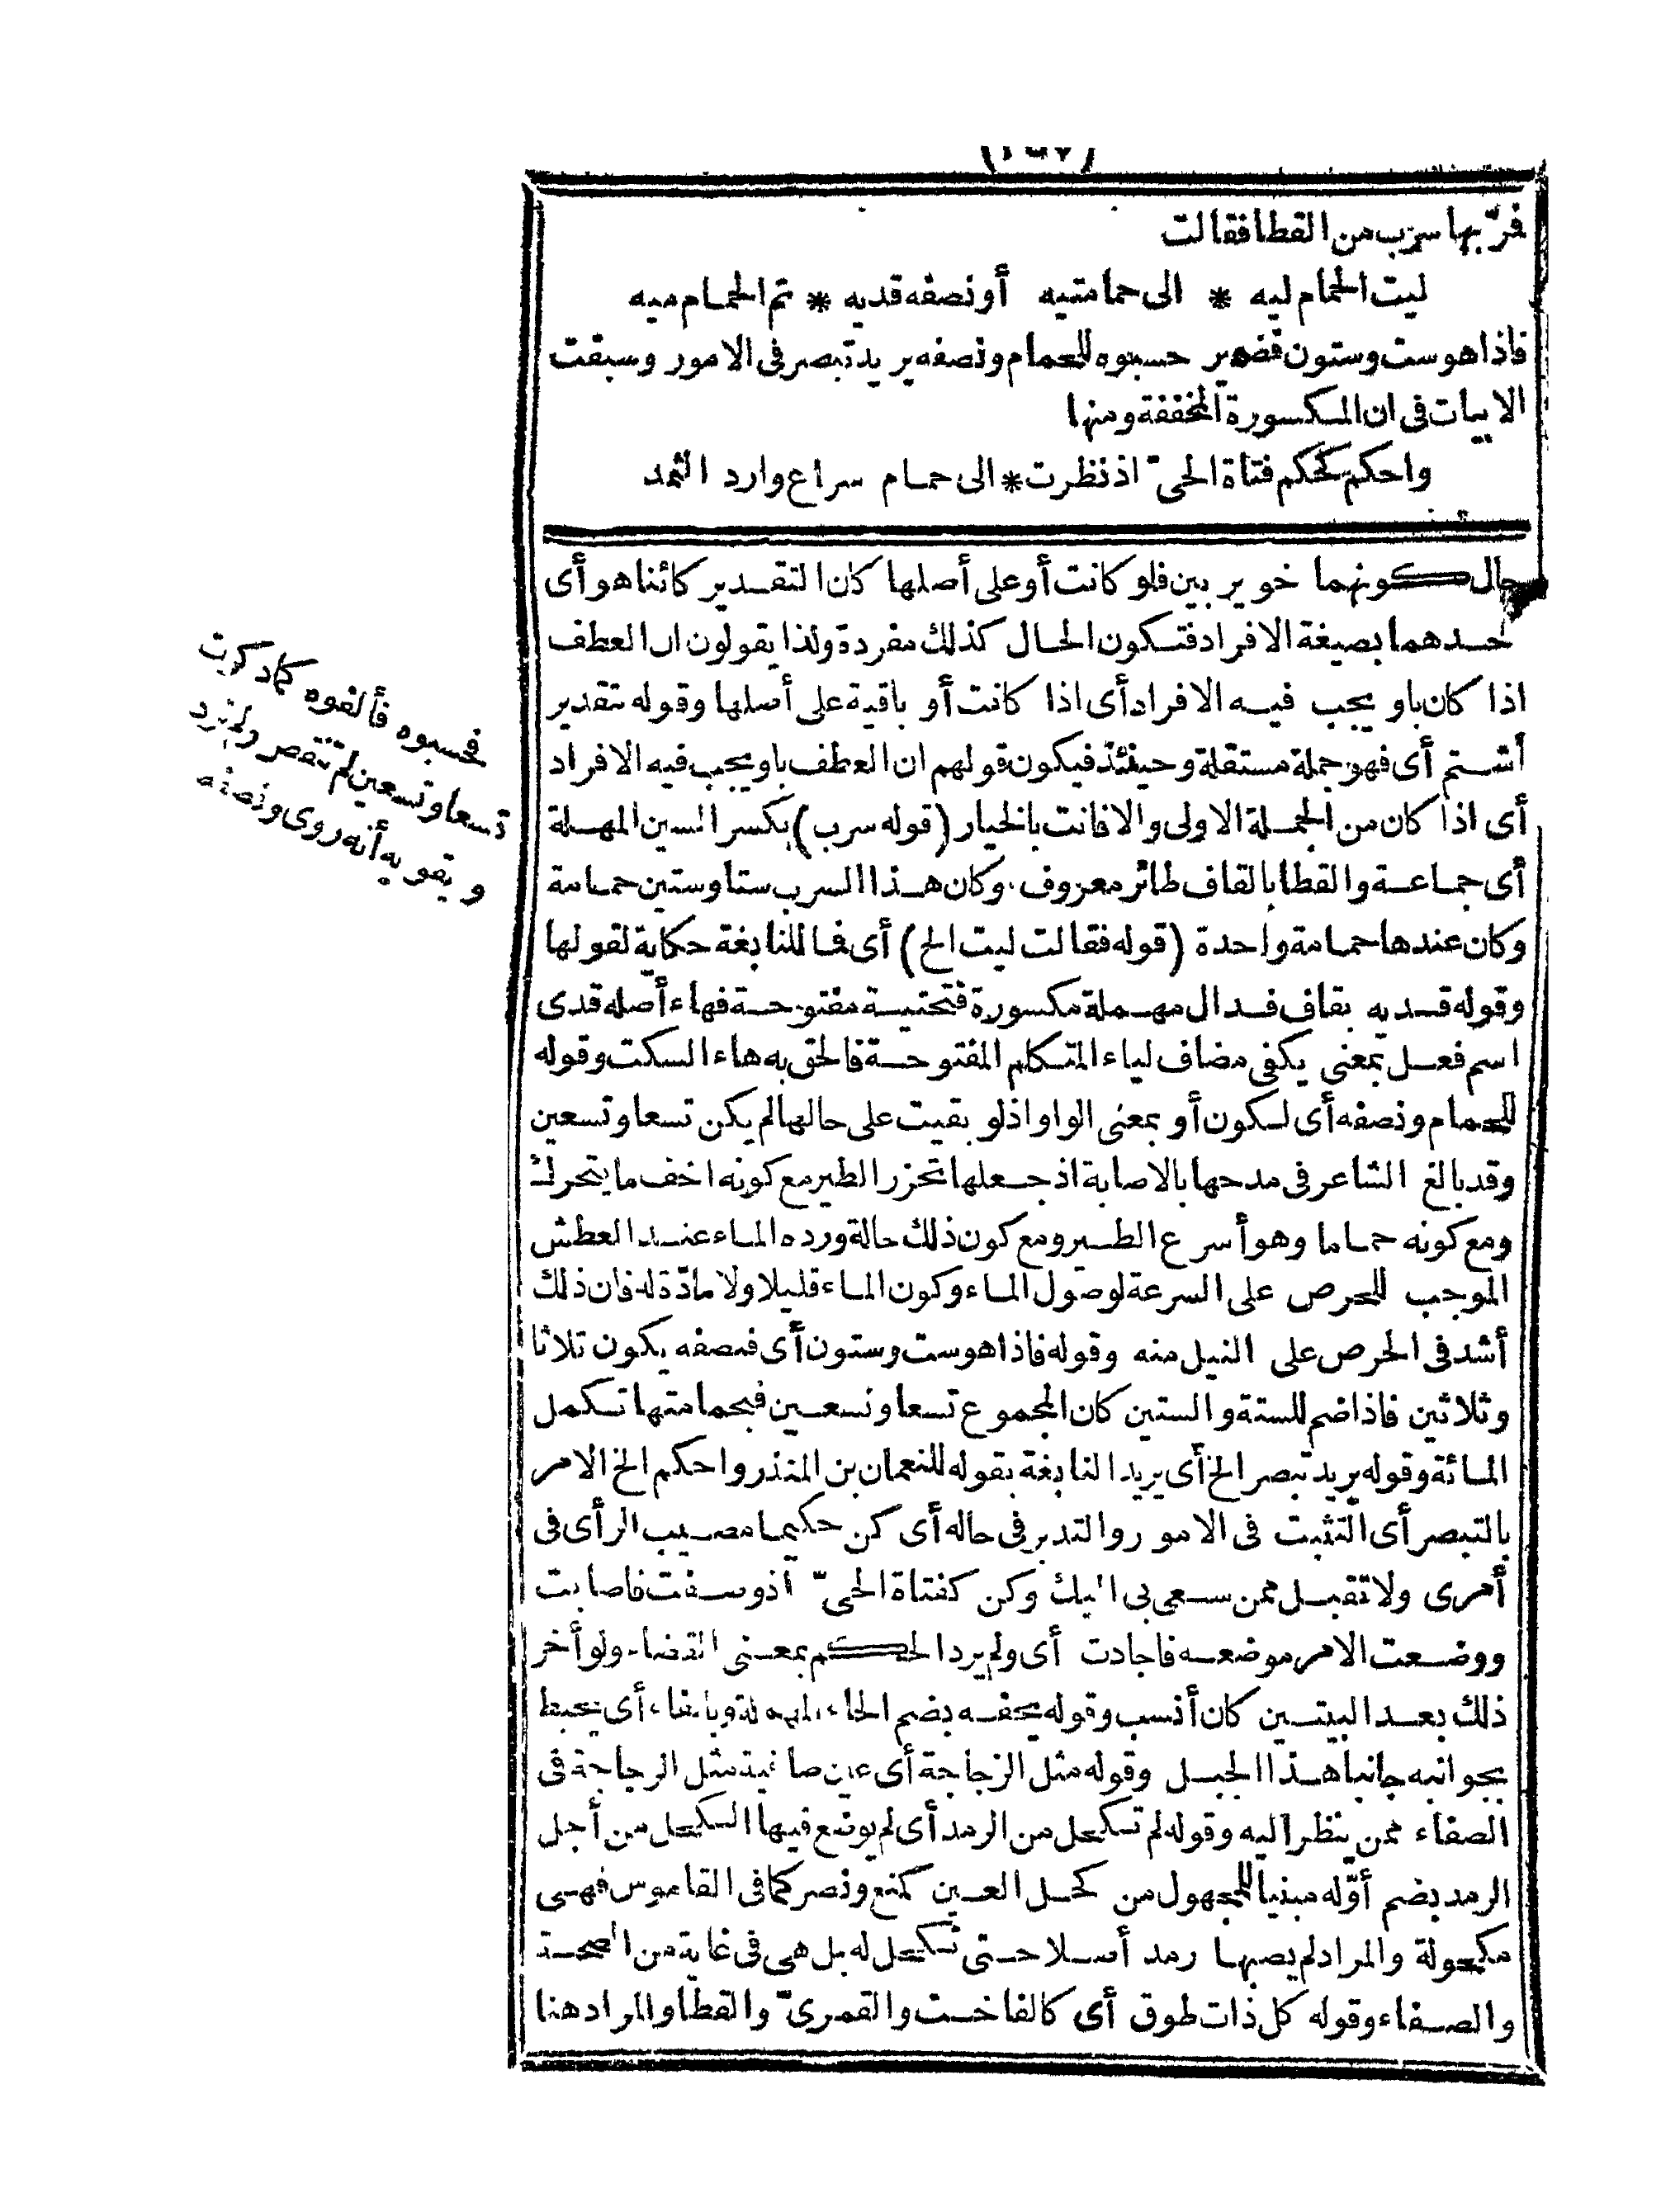 فمرّ بها سرب من القطا فقالت
ليت الحمام ليه * الى حمامتيه أو نصفه قديه * تم الحمام ميه
فاذا هو ست وستون فضمير حسبوه للحمام ونصفه يريد تبصر فى الامور وسبقت
الابيات فى ان المكسورة المخففة ومنها
واحكم كحكم فتاة الحىّ اذ نظرت * الى حمام سراع وارد الثمد
حال كونهما خويربين فلو كانت أو على أصلها كان التقدير كائنا هو أى
أحدهما بصيغة الافراد فتكون الحال كذلك مفردة ولذا يقولون ان العطف
اذا كان باو يجب فيه الافراد أى اذا كانت أو باقية على أصلها وقوله تقدير
أشتم أى فهو جملة مستقلة وحينئذ فيكون قولهم ان العطف باو يجب فيه الافراد
أى اذا كان من الجملة الاولى والا فانت بالخيار (قوله سرب) بكسر السين المهملة
أى جماعة والقطا بالقاف طائر معروف وكان هذا السرب ستا وستين حمامة
وكان عندها حمامة واحدة (قوله فقالت ليت الخ) أى فما للنابغة حكاية لقولها
وقوله قديه بقاف فدال مهملة مكسورة فتحتية مفتوحة فهاء أصله قدى
اسم فعل بمعنى يكفى مضاف لياء المتكلم المفتوحة فالحق به هاء السكت وقوله
للحمام ونصفه أى لسكون أو بمعنى الواو اذ لو بقيت على حالها لم يكن تسعا وتسعين
وقد بالغ الشاعر فى مدحها بالاصابة اذ جعلها تحزر الطير مع كونه اخف ما يتحرك
ومع كونه حماما وهو أسرع الطير ومع كون ذلك حالة ورده الماء عند العطش
الموجب للحرص على السرعة لوصول الماء وكون الماء قليلا ولا مادّة له فان ذلك
أشد فى الحرص على النيل منه وقوله فاذا هو ست وستون أى فنصفه يكون ثلاثا
وثلاثين فاذا ضم للستة والستين كان المجموع تسعا وتسعين فبحمامتها تكمل
المائة وقوله يريد تبصر الخ أى يريد النابغة بقوله للنعمان بن المنذر واحكم الخ الامر
بالتبصر أى التثبت فى الامور والتدبر فى حاله أى كن حكيما مصيب الرأى فى
أمرى ولا تقبل ممن سعى بى اليك وكن كفتاة الحىّ اذ وصفت فاصابت
ووضعت الامر موضعه فاجادت أى ولم يرد الحكم بمعنى القضاء ولو أخر
ذلك بعد البيتين كان أنسب وقوله يحفه بضم الحاء المهملة وبالفاء أى يحيط
بجوانبه جانبا هذا الجبل وقوله مثل الزجاجة أى عين صافية مثل الزجاجة فى
الصفاء ممن ينظر اليه وقوله لم تكحل من الرمد أى لم يوضع فيها الكحل من أجل
الرمد بضم أوّله مبنيا للمجهول من كحل العين كمنع ونصر كما فى القاموس فهى
مكحولة والمراد لم يصبها رمد أصلا حتى تكحل له بل هى فى غاية من الصحة
والصفاء وقوله كل ذات طوق أى كالفاخت والقمرىّ والقطا والمراد هنا
فحسبوه فألفوه كما ذكرت
تسعا وتسعين لم تنقص ولم تزد
ويقويه أنه روى ونصفه